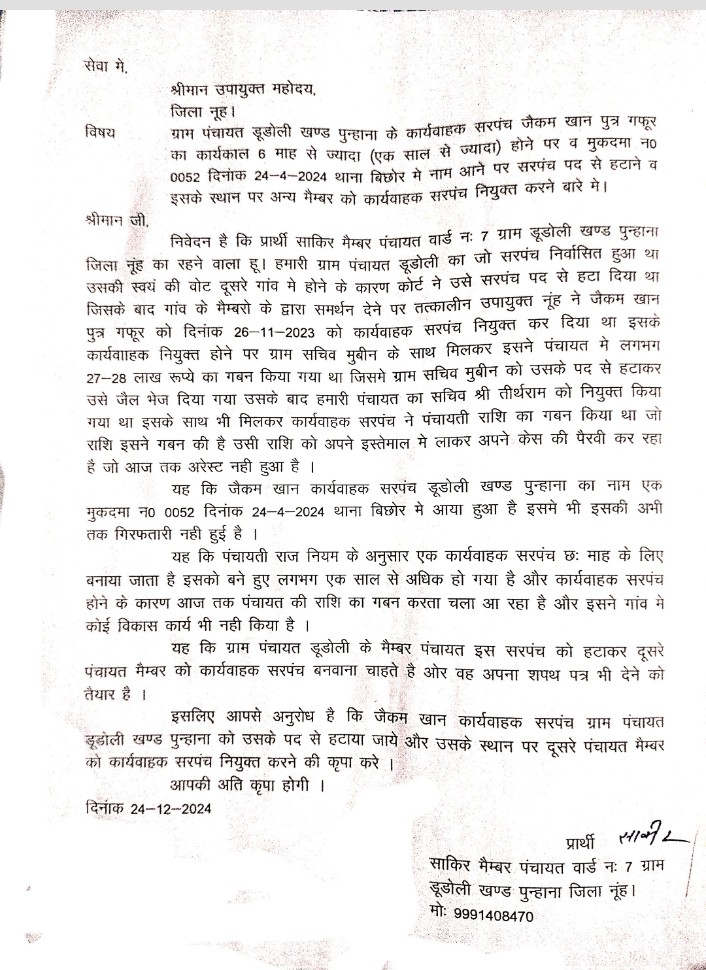 सेवा मे,
श्रीमान उपायुक्त महोदय,
जिला नूह।
विषय ग्राम पंचायत डूडोली खण्ड पुन्हाना के कार्यवाहक सरपंच जैकम खान पुत्र गफूर
का कार्यकाल 6 माह से ज्यादा (एक साल से ज्यादा) होने पर व मुकदमा न0
0052 दिनांक 24-4-2024 थाना बिछोर मे नाम आने पर सरपंच पद से हटाने व
इसके स्थान पर अन्य मैम्बर को कार्यवाहक सरपंच नियुक्त करने बारे मे।
श्रीमान जी,
निवेदन है कि प्रार्थी साकिर मैम्बर पंचायत वार्ड नः 7 ग्राम डूडोली खण्ड पुन्हाना
जिला नूंह का रहने वाला हू। हमारी ग्राम पंचायत डूडोली का जो सरपंच निर्वासित हुआ था
उसकी स्वयं की वोट दूसरे गांव मे होने के कारण कोर्ट ने उसे सरपंच पद से हटा दिया था
जिसके बाद गांव के मैम्बरो के द्वारा समर्थन देने पर तत्कालीन उपायुक्त नूंह ने जैकम खान
पुत्र गफूर को दिनांक 26-11-2023 को कार्यवाहक सरपंच नियुक्त कर दिया था इसके
कार्यवााहक नियुक्त होने पर ग्राम सचिव मुबीन के साथ मिलकर इसने पंचायत मे लगभग
27-28 लाख रूप्ये का गबन किया गया था जिसमे ग्राम सचिव मुबीन को उसके पद से हटाकर
उसे जैल भेज दिया गया उसके बाद हमारी पंचायत का सचिव श्री तीर्थराम को नियुक्त किया
गया था इसके साथ भी मिलकर कार्यवाहक सरपंच ने पंचायती राशि का गबन किया था जो
राशि इसने गबन की है उसी राशि को अपने इस्तेमाल मे लाकर अपने केस की पैरवी कर रहा
है जो आज तक अरेस्ट नही हुआ है ।
यह कि जैकम खान कार्यवाहक सरपंच डूडोली खण्ड पुन्हाना का नाम एक
मुकदमा न0 0052 दिनांक 24-4-2024 थाना बिछोर मे आया हुआ है इसमे भी इसकी अभी
तक गिरफतारी नही हुई है ।
यह कि पंचायती राज नियम के अनुसार एक कार्यवाहक सरपंच छः माह के लिए
बनाया जाता है इसको बने हुए लगभग एक साल से अधिक हो गया है और कार्यवाहक सरपंच
होने के कारण आज तक पंचायत की राशि का गबन करता चला आ रहा है और इसने गांव मे
कोई विकास कार्य भी नही किया है ।
यह कि ग्राम पंचायत डूडोली के मैम्बर पंचायत इस सरपंच को हटाकर दूसरे
पंचायत मैम्बर को कार्यवाहक सरपंच बनवाना चाहते है ओर वह अपना शपथ पत्र भी देने को
तैयार है ।
इसलिए आपसे अनुरोध है कि जैकम खान कार्यवाहक सरपंच ग्राम पंचायत
डूडोली खण्ड पुन्हाना को उसके पद से हटाया जाये और उसके स्थान पर दूसरे पंचायत मैम्बर
को कार्यवाहक सरपंच नियुक्त करने की कृपा करे ।
आपकी अति कृपा होगी ।
दिनांक 24-12-2024
प्रार्थी
साकिर मैम्बर पंचायत वार्ड नः 7 ग्राम
डूडोली खण्ड पुन्हाना जिला नूंह।
मोः 9991408470